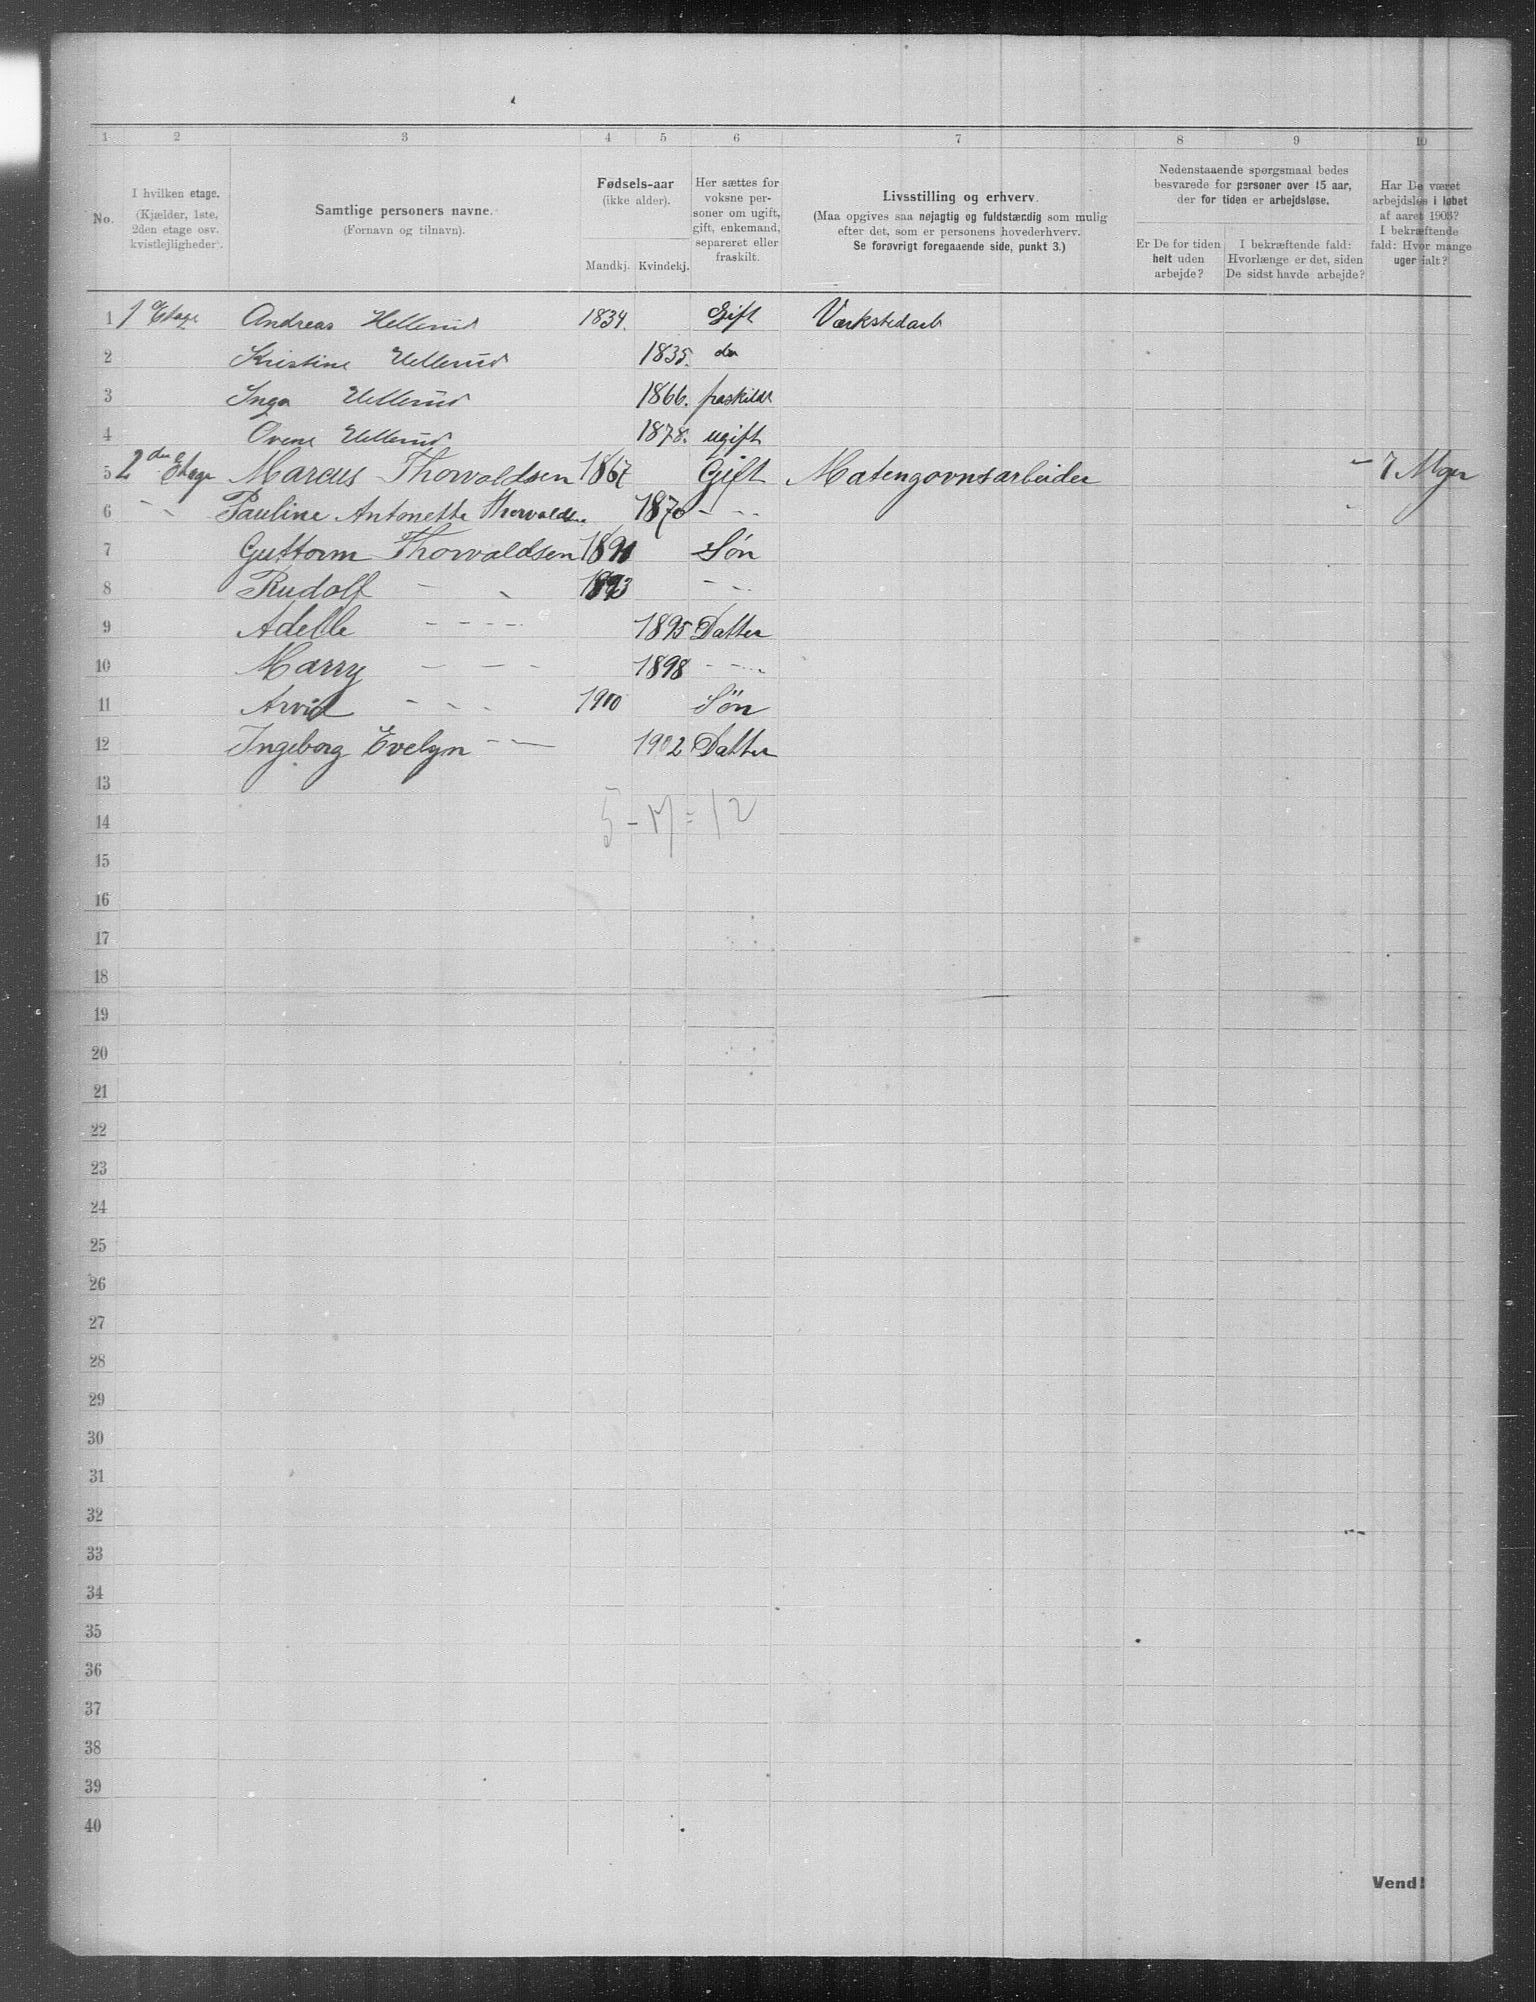 1 2 3 4 5 6 7 8 9 10
No.
I hvilken etage.
(Kjælder, 1ste,
2den etage osv.
kvistlejligheder).
Samtlige personers navne.
(Fornavn og tilnavn).
Fødsels-aar
(ikke alder).
Mandkj. Kvindekj.
Her sættes for
voksne per-
soner om ugift,
gift, enkemand,
separeret eller
fraskilt.
Livsstilling og erhverv.
(Maa opgives saa nøjagtig og fuldstændig som mulig
efter det, som er personens hovederhverv.
Se forøvrigt foregaaende side, punkt 3.)
Nedenstaaende spørgsmaal bedes
besvarede for personer over 15 aar,
der for tiden er arbejdsløse.
Er De for tiden
helt uden
arbejde?
I bekræftende fald:
Hvorlænge er det, siden
De sidst havde arbejde?
Har De været
arbejdsløs i løbet
af aaret 1903?
I bekræftende
fald: Hvor mange
uger ialt?
1 1 Etage Andreas Hellerud 1834. Gift Værkstedarb
2 Kristine Hellerud 1835. do
3 Inga Hellerud 1866. fraskildt
4 Ovene Hellerud 1878. ugift
5 2den Etage Marcus Thorvaldsen 1867 Gift Matengovnsarbeider - 7 Uger
6 - - Pauline Antonette Thorvaldsen 1870 - - -
7 Guttorm Thorvaldsen 1891 Søn
8 Rudolf - - 1893 - -
9 Adelle - - - - 1895 Datter
10 Marry - - - 1898 - - -
11 Arvid - - - 1900 Søn
12 Ingeborg Evelyn - - 1902 Datter
13
14 5 - 7 = 12
15
16
17
18
19
20
21
22
23
24
25
26
27
28
29
30
31
32
33
34
35
36
37
38
39
40
Vend!